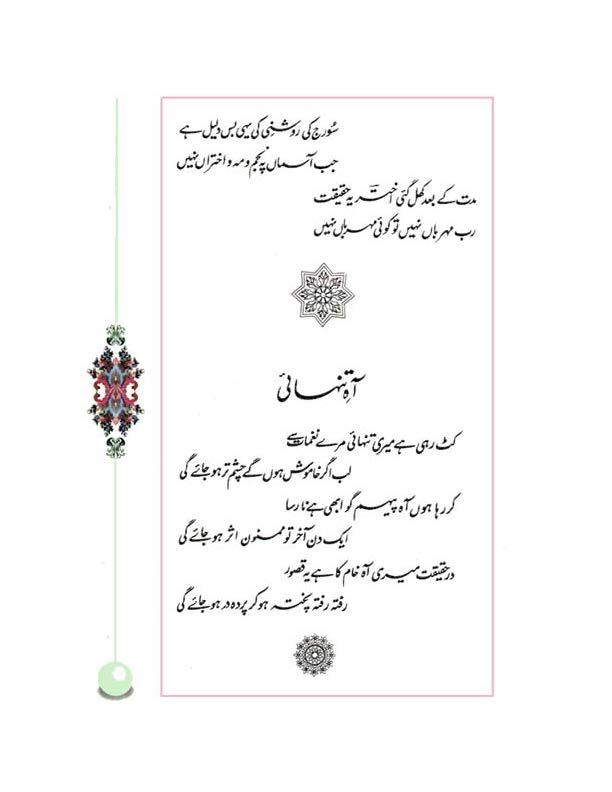 سُورج کی روشنی کی یہی بس دلیل ہے
جب آسماں پہ نجم و مہ و اختراں نہیں
مدت کے بعد کھل گئی اخترؔ یہ حقیقت
رب مہرباں نہیں تو کوئی مہرباں نہیں
آہِ تنہائی
کٹ رہی ہے میری تنہائی مرے نغمات سے
لب اگر خاموش ہوں گے چشم تر ہو جائے گی
کر رہا ہوں آہ پیہم گو ابھی ہے نارسا
ایک دن آخر تو ممنون اثر ہو جائے گی
در حقیقت میری آہ خام کا ہے یہ قصور
رفتہ رفتہ پختہ ہو کر پردہ در ہو جائے گی